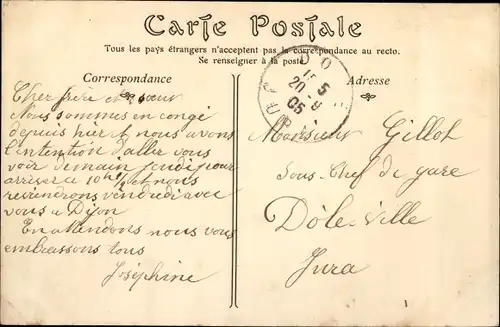 Carte Postale
Tous les pays étrangers n'acceptent pas la correspondance au recto.
Se renseigner à la poste
Correspondance
Cher frère et sœur
Nous sommes en congé
depuis hier et nous avons
l'intention d'aller vous
voir demain jeudi pour
arriver à 10h½ et nous
reviendrons vendredi avec
vous a Dijon
En attendons nous vous
embrassons tous
Joséphine
Adresse
15 5
20 -9
05
Monsieur Gillot
Sous-Chef de gare
Dôle-Ville
Jura